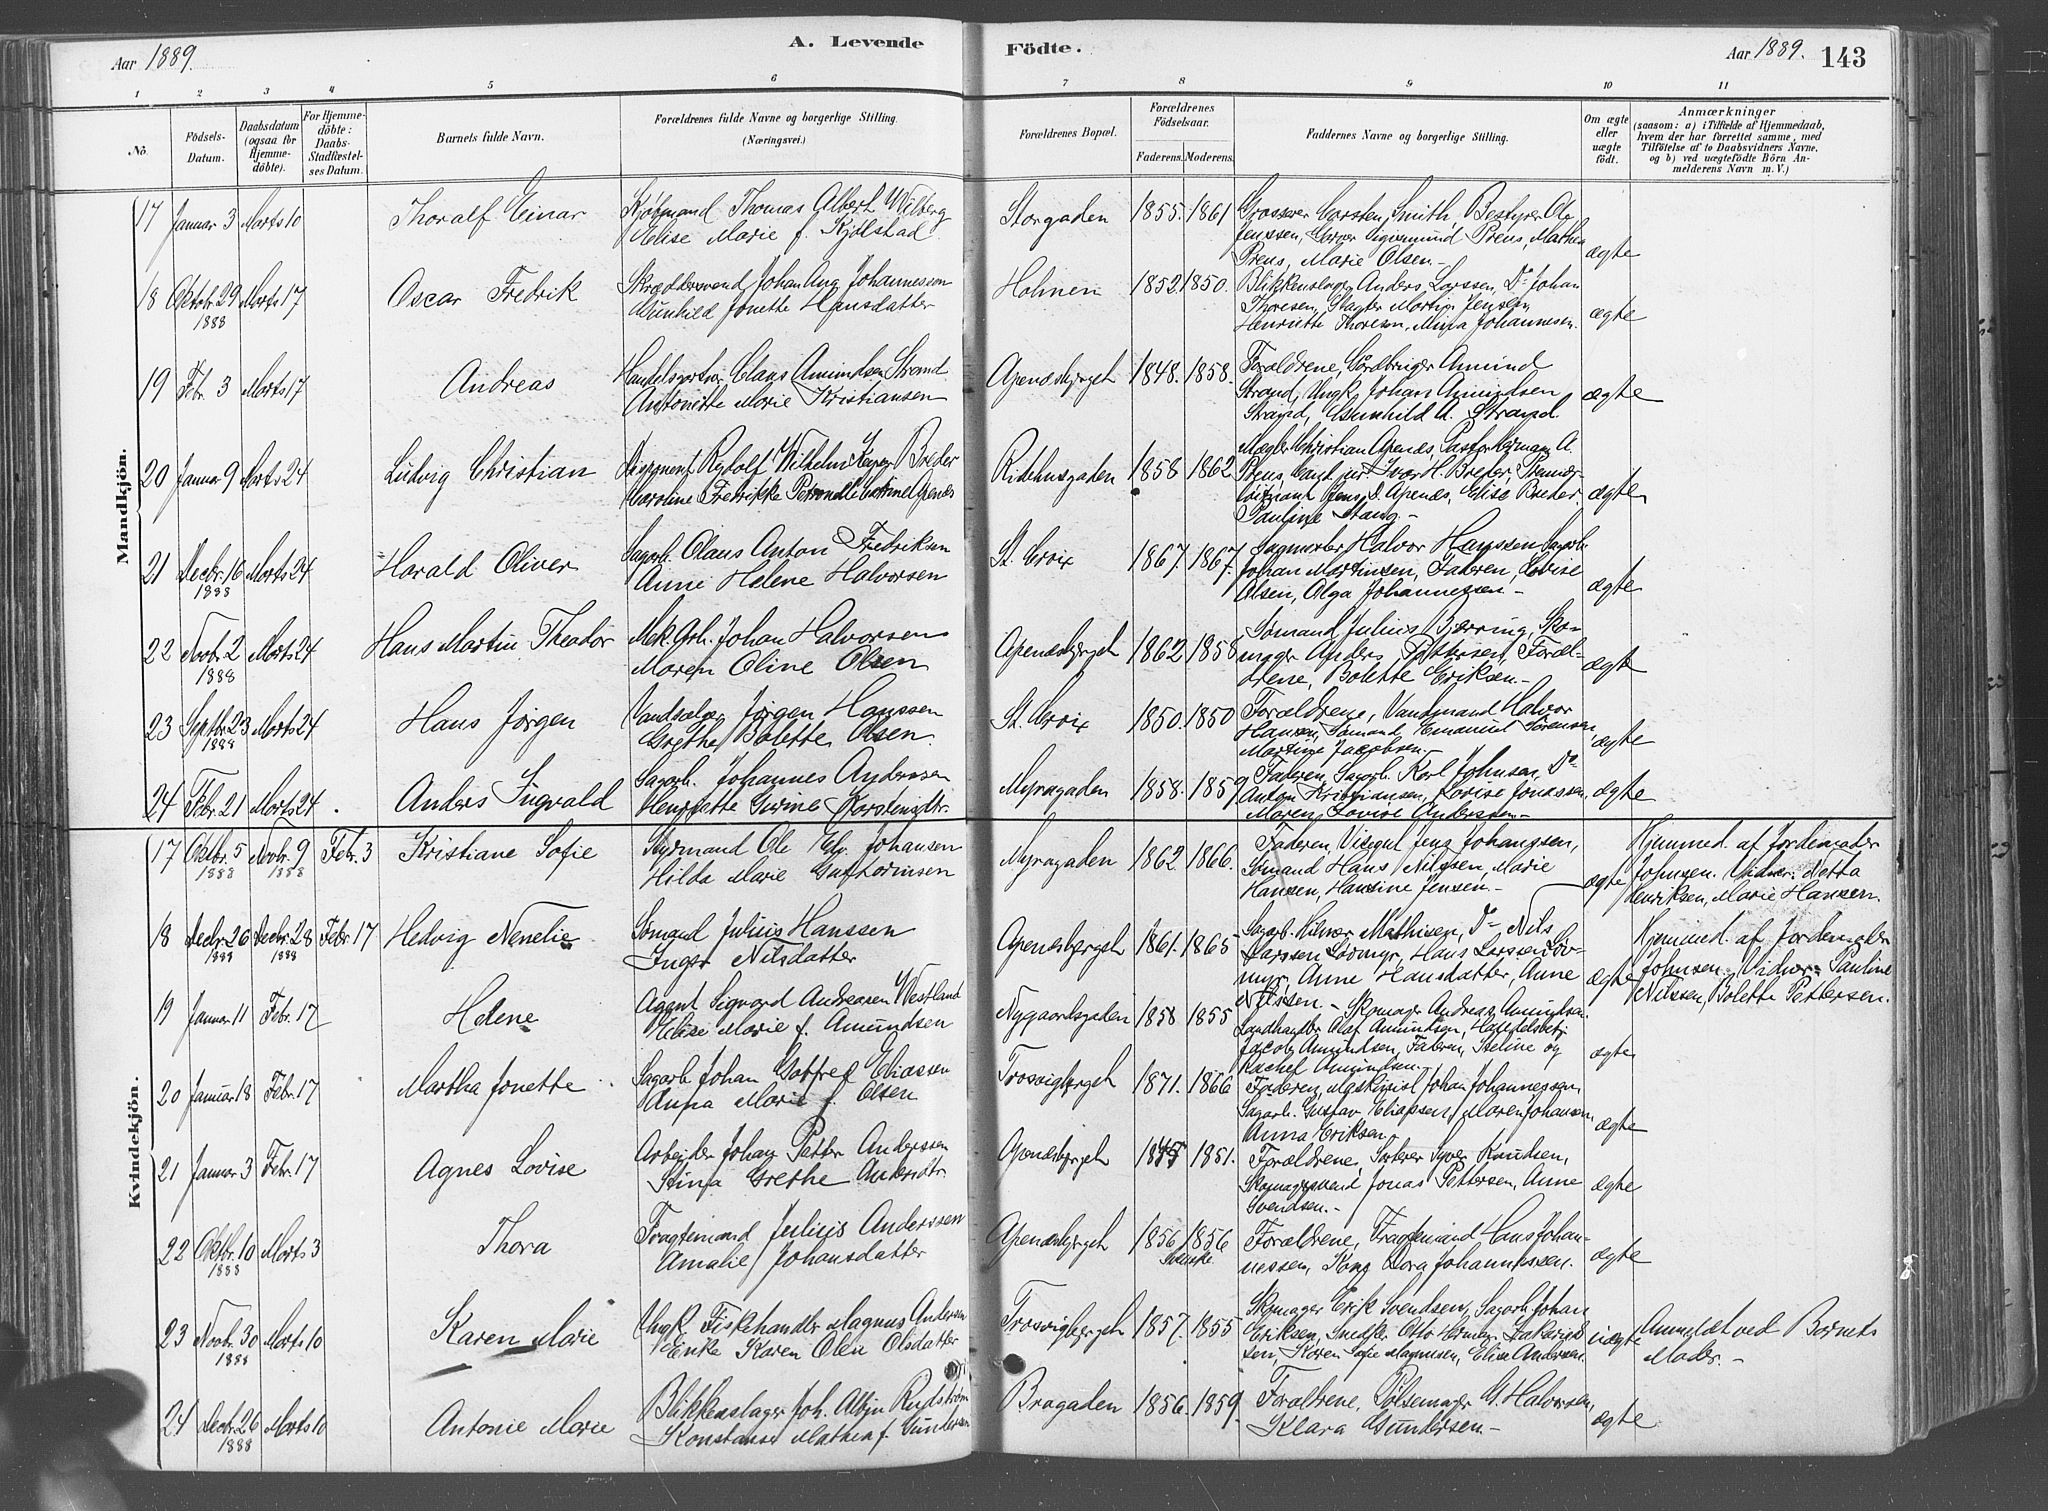 Aar 1889.
A. Levende
Födte.
Aar 1889.
143
1 2 3 4 5 6 7 8 9 10 11
No.
Födsels-
Datum.
Daabsdatum
(ogsaa for
Hjemme-
döbte).
For Hjemme-
döbte:
Daabs-
Stadfæstel-
ses Datum.
Barnets fulde Navn.
Forældrenes fulde Navne og borgerlige Stilling.
(Næringsvei.)
Forældrenes Bopæl.
Forældrenes
Födselsaar.
Faderens. Moderens.
Faddernes Navne og borgerlige Stilling.
Om ægte
eller
uægte
födt.
Anmærkninger
(saasom: a) i Tilfælde af Hjemmedaab,
hvem der har forrettet samme, med
Tilföielse af to Daabsvidners Navne,
og b) ved uægtefödte Börn An-
melderens Navn m. V.)
Mandkjön.
17 Januar 3 Marts 10
Thoralf Einar
Kjøbmand Thomas Albert Wilberg
Elise Marie f. Kjølstad
Storgaden 1855. 1861
Grosserer Carsten Smith, Bestyrer Ole
Jenssen, Garver Sigismund Prens, Mathea
Prens, Marie Olsen.-
ægte
18 Oktobr. 29 Marts 17
1888
Oscar Fredrik
Skræddersvend Johan Aug. Johannesson
Gunhild Jonette Hansdatter
Holmen 1852. 1850.
Blikkenslager Anders Larssen, Do Johan
Thoresen, Slagter Martin Jensen,
Henriette Thoresen, Mina Johannesen.
ægte
19 Febr. 3 Marts 17
Andreas
Claus Amundsen Strand
Antonette Marie Kristiansen
Apenæsbjerget 1848. 1858.
Forældrene, Amund
Strand, Ungk. Johan Amundsen
Strand, Gunhild A. Strand.
ægte
20 Januar 9 Marts 24
Ludvig Christian
Rudolf Wilhelm Breder
Karoline Fredrikke Apenæs
Ridehusgaden 1858 1862
Mægler Christian Apenæs, Pastor Herman A.
Prens, Cand. jur. Ivar H. Breder, Premier-
løitnant Jens S. Apenæs, Elise Breder.
Pauline Stang -
ægte
21 Decbr. 16 Marts 24
1888
Harald Oliver
Sagarb. Olaus Anton Fredriksen
Anne Helene Halvorsen
St. Croix 1867. 1867.
Sagmester Halvor Hanssen, Sagarb.
Johan Martinsen, Faderen, Lovise
Olsen, Olga Johannessen -
ægte
22 Novbr. 2 Marts 24
1888
Hans Martin Theodor
Mek. Arb. Johan Halvorsen
Maren Oline Olsen
Apenæsbjerget 1862 1858
Sømand Julius Bjerring, Sko-
mager Anders Pettersen, Foræl-
drene, Bolette Eriksen -
ægte
23 Septbr. 23 Marts 24
1888
Hans Jørgen
Vandsælger Jørgen Hanssen
Grethe Bolette Olsen
St. Croix 1850. 1850
Forældrene, Vandmand Halvor
Hansen, Sømand Emanuel Sørensen,
Martine Jacobsen.-
ægte
24 Febr. 21 Marts 24
Anders Ingvald
Sagarb. Johannes Anderssen
Henriette Karstensdtr.
Myragaden 1858. 1859
Faderen, Sagarb. Karl Johnsen, Do
Anton Kristiansen, Lovise Jonassen,
Maren Lovise Anderssen -
ægte
Kvindekjön.
17 Oktbr. 5 Novbr. 9 Febr. 3
1888 1888
Kristiane Sofie
Styrmand Ole Edv. Johansen
Hilda Marie Guttormsen
Myragaden 1862 1866.
Faderen, Jens Johansen,
Sømand Hans Nilssen, Marie
Hansen, Hansine Jensen.-
ægte
Hjemmed. af Jordemoder
Johnsen. Vidner: Netta
Henriksen, Marie Hansen.
18 Decbr. 26 Decbr. 28 Febr. 17
1888 1888
Hedvig Nenelie
Sømand Julius Hanssen
Inger Nilsdatter
Apenæsbjerget 1861. 1865
Sagarb. Hilmar Mathisen, Do Nils
Larssen Løvmyr, Hans Larsen Løv-
myr, Anne Hansdatter, Anne
Nilssen.-
ægte
Hjemmed. af Jordemoder
Johnsen. Vidner: Pauline
Nilssen, Bolette Pettersen.
19 Januar 11 Febr. 17
Helene
Agent Sigvard Andreasen Westland
Elise Marie f. Amundsen
Nygaardsgaden 1858 1855
Skomager Andreas Amundsen
Landhandler Olaf Amundsen, Handelsbetj.
Jacob Amundsen, Faderen, Steline og
Rachel Amundsen
ægte
20 Januar 18 Febr. 17
Martha Jonette
Sagarb. Johan Gotfred Eliassen
Anna Marie f. Olsen
Trosvigbjerget 1871. 1866
Faderen, Maskinist Johan Johannessen,
Sagarb. Gustav Eliassen, Maren Johansen
Anna Eriksen
ægte
21 Januar 3 Febr. 17
Agnes Lovise
Arbeider Johan Petter Anderssen
Stina Grethe Andersdtr.
Apenæsbjerget 1851.
Forældrene, Sorterer Syver Knudsen,
Skomagersvend Jonas Pettersen, Anne
Svendsen.-
ægte
22 Oktbr. 10 Marts 3
1888
Thora
Fragtemand Julius Anderssen
Amalie Johansdatter
Apenæsbjerget 1856 1856
Svenske
Forældrene, Fragtemand Hans Johan-
nessen, Kone Dora Johannessen.
ægte
23 Novbr. 30 Marts 10
1888
Karen Marie
Ungk. Fiskehandler Magnus Andersen
Enke Karen Olea Olsdatter
Trosvigbjerget 1857. 1855
Skomager Erik Svendsen, Sagarb. Johan
Eriksen, Snedker Otto Herman Zakarias-
sen, Karen Sofie Magnusen, Elise Andersen.
uægte
Anmeldt ved Barnets
Moder.-
24 Decbr. 26 Marts 10
1888
Antonie Marie
Blikkenslager Joh. Albin Rudstrøm
Konstanse Mathea f. Gundersen
Brogaden 1856. 1859.
Forældrene, Pølsemager G. Halvorsen,
Klara Gundersen.-
ægte